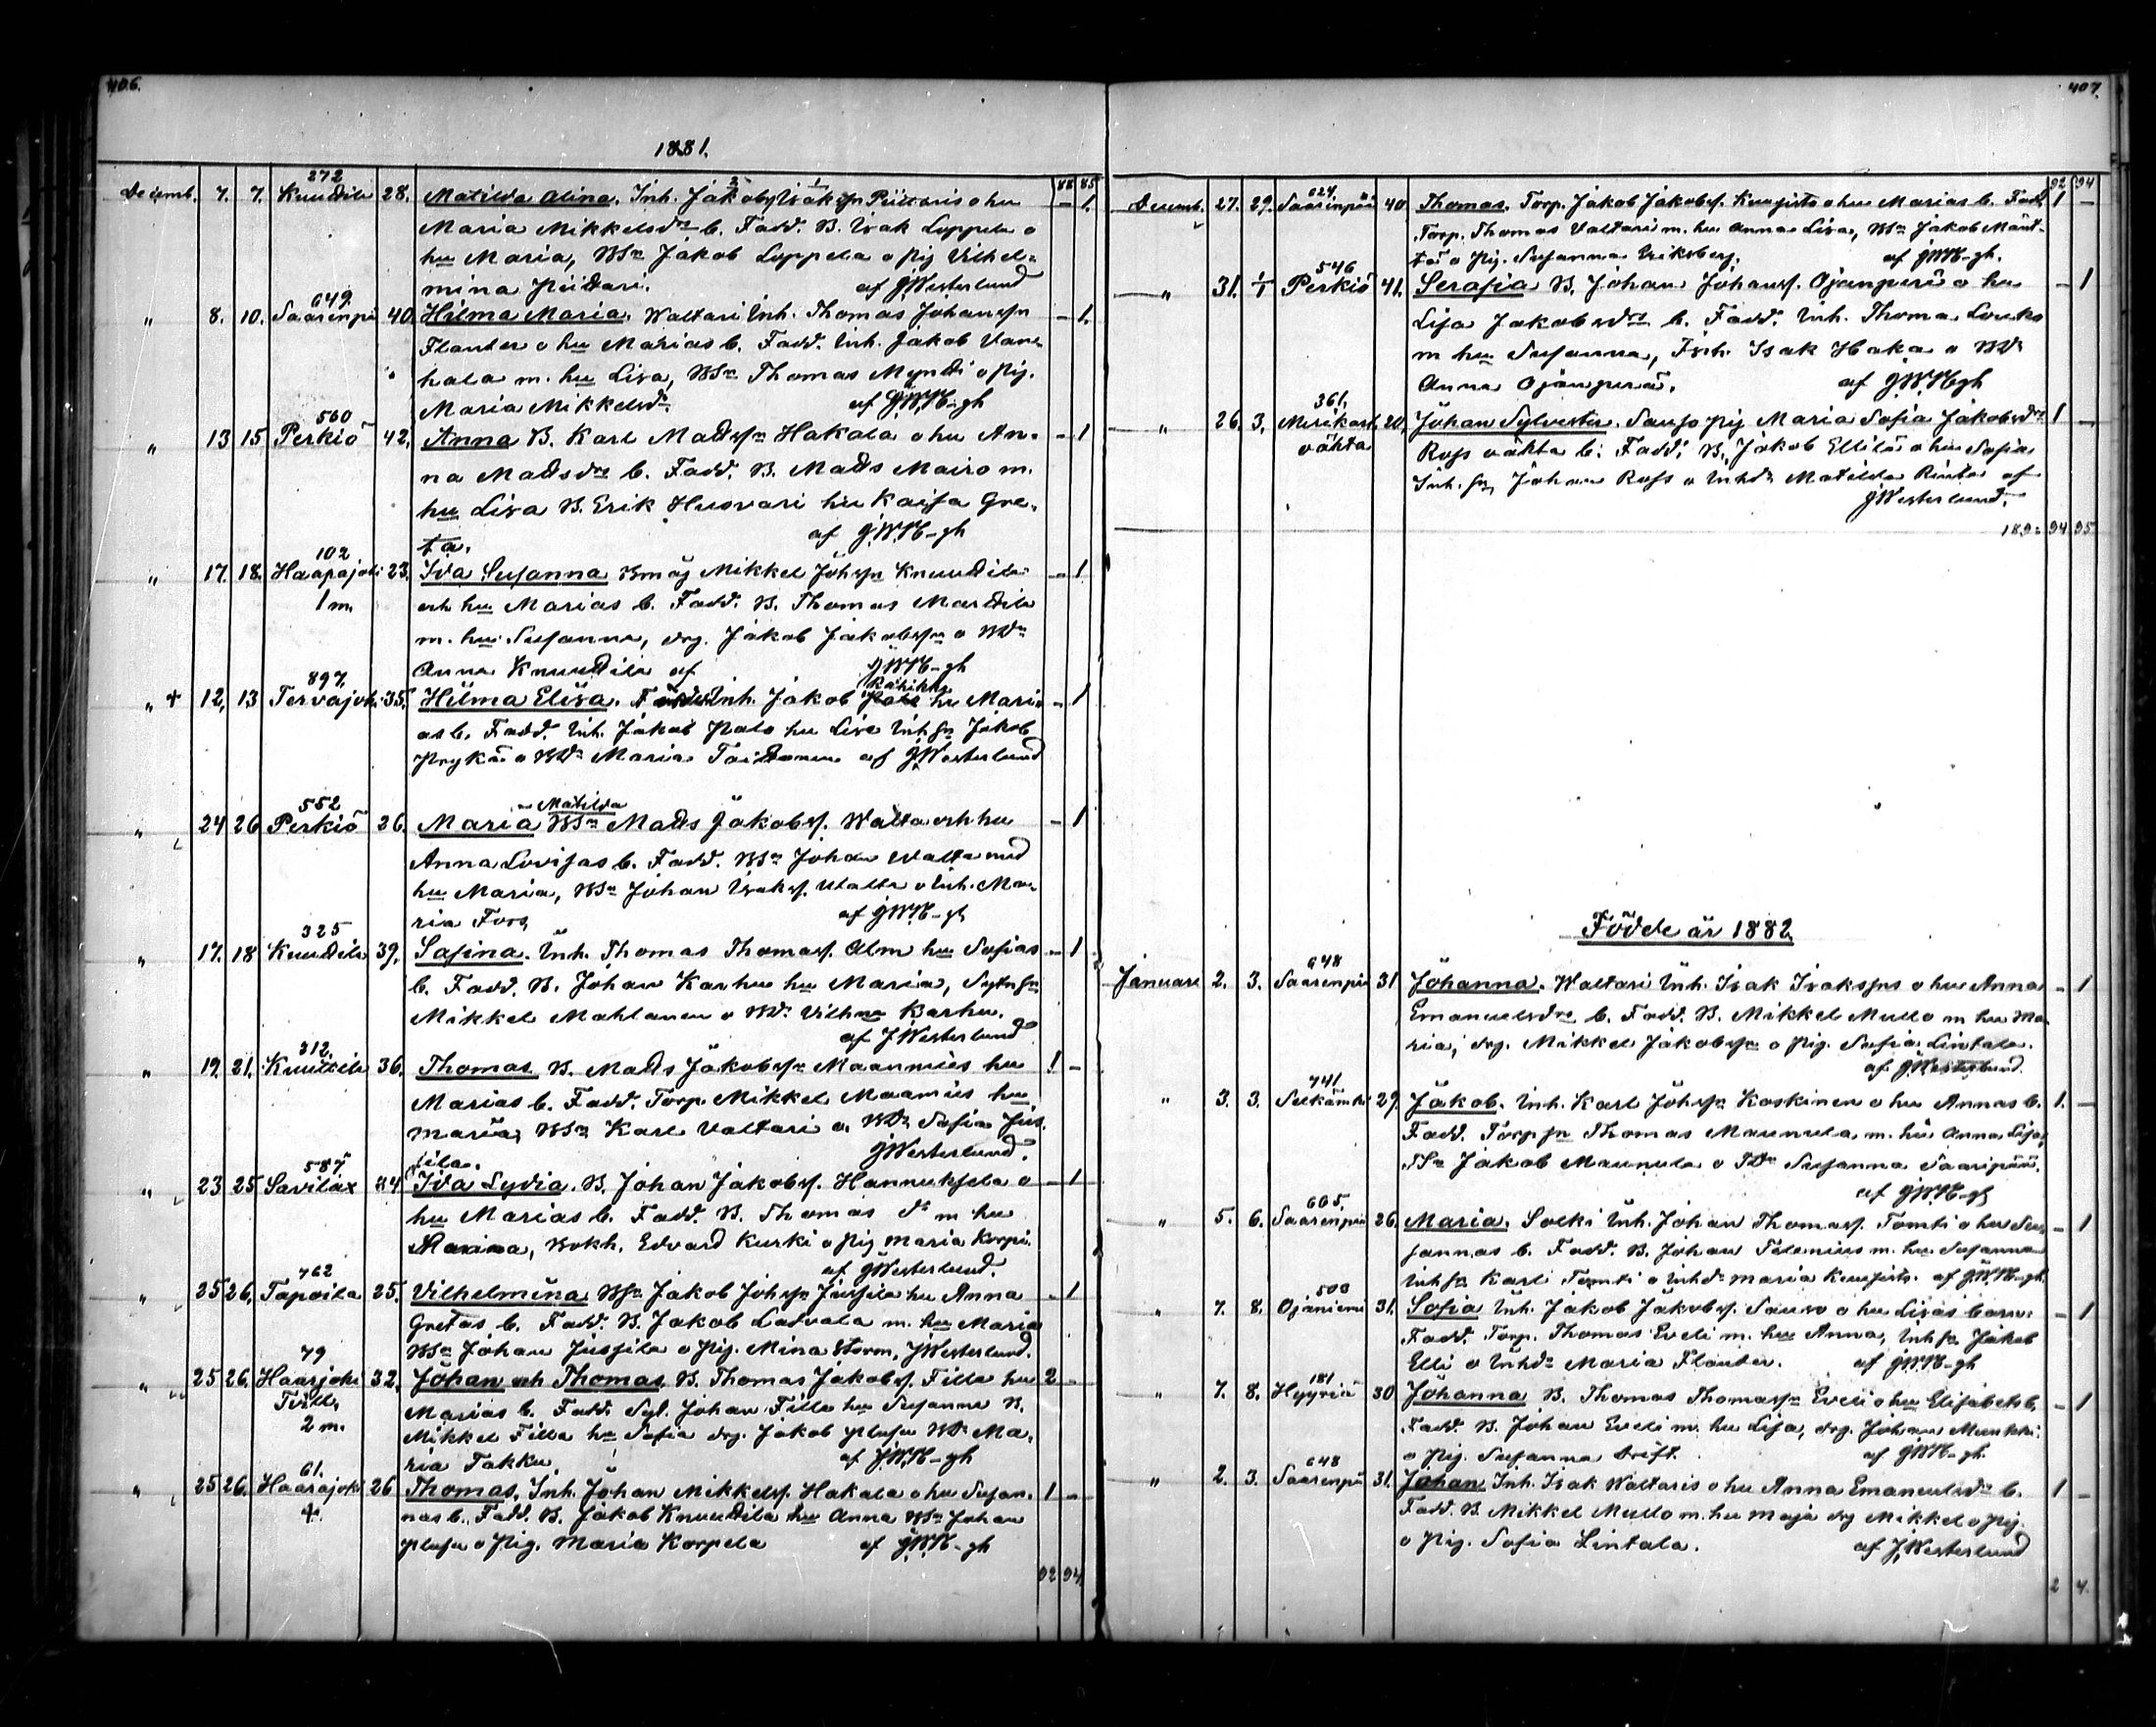 406.
1881.
88 85
272
Decemb. 7. 7. Knuutila 28. Matilda Alina. Inh. Jakob Isaksn Piittaris o hu — 1.
Maria Mikkelsdr b. Fadd. B. Isak Luppela o
hu Maria, BSn Jakob Luppela o pig Vilhel-
mina Piittari. af JWesterlund
649.
" 8. 10. Saarenpä 40. Hilma Maria. Waltari Inh. Thomas Johanssn — 1.
Flanter o hu Marias b. Fadd. Inh. Jakob Vane-
hala m. hu Lisa, BSn Thomas Myntti o pig.
Maria Mikkelsdr. af JWH-gh
560
" 13 15. Perkiö 42. Anna B. Karl Madssn Hakala o hu An- — 1
na Madsdrs b. Fadd. B. Mads Mairo m.
hu Lisa B. Erik Husvari hu Kajsa Gre-
ta. af JWH-gh
102
" 17. 18. Haapajoki 23. Ida Susanna Bmåg Mikkel Johssn Knuutila — 1
1 m. och hu Marias b. Fadd. B. Thomas Marttila
m. hu Susanna, drg. Jakob Jakobssn o BDr
Anna Knuutila af JWH-gh
897. Räihikkä
" + 12, 13 Tervajoki 35. Hilma Elisa. Inh. Jakob Palo hu Mari- — 1
as b. Fadd. Inh. Jakob Palo hu Lisa Inhsn Jakob
Prykä o BDr Maria Toidonen af JWesterlund
552 Matilda
" 24 26 Perkiö 26. Maria BSn Mads Jakobsf. Walta och hu — 1
Anna Lovisas b. Fadd. BSn Johan Walta med
hu Maria, BSn Johan Isaksf. Walta o Inh. Ma-
ria Fors, af JWH-gh
325
" 17. 18 Knuutila 39. Safina. Inh. Thomas Thomasf. Alm hu Sofias — 1
b. Fadd. B. Johan Karhu hu Maria, Sytnsn
Mikkel Mahlanen o BDr Vilhna Karhu.
af JWesterlund
312.
" 19. 21. Knuutila 36. Thomas B. Mads Jakobssn Maanmies hu 1 —
Marias b. Fadd. Torp. Mikkel Maamies hu
Maria, BSn Karl Valtari o BDr Sofia Jus-
sila. JWesterlund.
587
" 23 25 Savilax 24 Ida Lydia. B. Johan Jakobsf. Hannuksela o — 1
hu Marias b. Fadd. B. Thomas do m hu
Maria, Bokh. Edvard Kurki o pig Maria Korpi.
af JWesterlund.
762
" 25 26. Tapoila 25. Vilhelmina BSn Jakob Johssn Jussila hu Anna — 1
Gretas b. Fadd. B. Jakob Ladvala m. hu Maria
BSn Johan Jussila o pig. Mina Storm, JWesterlund.
79
" 25 26. Haarjoki 32. Johan och Thomas. B. Thomas Jakobsf. Filla hu 2 —
Tvill. Marias b. Fadd. Syt. Johan Filla hu Susanna B.
2 m. Mikkel Filla hu Sofia drg. Jakob BDr Ma-
ria Takku af JWH-gh
61.
" 25 26. Haarajoki 26 Thomas. Inh. Johan Mikkelsf. Hakala o hu Susan- 1 —
nas b. Fadd. B. Jakob Knuutila hu Anna BSn Johan
o pig. Maria Korpela af JWH-gh
92 94.
407.
92 94
624
Decemb. 27. 29. Saarenpää 40 Thomas. Torp. Jakob Jakobsf. Kuusisto o hu Marias b. Fadd 1 —
Torp. Thomas Valtari m. hu Anna Lisa, BSn Jakob Mänt-
tä o pig. Susanna Eriksberg. af JWH-gh.
546
" 31. 1/1 Perkiö 41. Serafia B. Johan Johansf. Ojanperä o hu — 1
Lisa Jakobsdrs b. Fadd. Inh. Thomas Louko
m hu Susanna, Inh. Isak Haka o BDr
Anna Ojanperä. af JWHgh
361.
" 26. 3. Merikart 20. Johan Sylvester. Sauso pig Maria Sofia Jakobsdrs 1 —
oäkta Ross oäkta b. Fadd. B. Jakob Ellilä o hu Sofia
Inh.sn Johan Ross o Inhdr Matilda Rinta af
JWesterlund.
189= 94 95
Födde år 1882.
648
Januari 2. 3. Saarenpää 31 Johanna. Waltari Inh. Isak Isakssns o hu Anna — 1
Emanuelsdrs b. Fadd. B. Mikkel Mullo m hu Ma-
ria, drg. Mikkel Jakobssn o pig. Sofia Lintala.
af JWesterlund.
741
" 3. 3. Selkämä 29. Jakob. Inh. Karl Johssn Koskinen o hu Annas b. 1. —
Fadd. Torpsn Thomas Maunula m. hu Anna Lisa,
TSn Jakob Maunula o TDr Susanna Saaripää.
af JWH-gh
605.
" 5. 6. Saarenpää 26. Maria. Solki Inh. Johan Thomasf. Tomti o hu Su- — 1
sannas b. Fadd. B. Johan Telenius m. hu Susanna
Inhsn Karl Tomti o Inhdr Maria Kuusisto. af JWH-gh.
503
" 7. 8. Ojaniemi 31. Sofia Inh. Jakob Jakobsf. Sauso o hu Lisas barn — 1
Fadd. Torp. Thomas Eveli m. hu Anna, Inhsn Jakob
Elli o Inhdr Maria Flanter. af JWH-gh
181
" 7. 8. Hyyriä 30 Johanna B. Thomas Thomassn Eveli o hu Elisabets b. — 1
Fadd. B. Johan Eveli m. hu Lisa, drg. Johan Munkki
o pig. Susanna Drift. af JWH-gh.
648
" 2. 3. Saarenpä 31. Johan Inh. Isak Waltaris o hu Anna Emanuelsdrs b. 1 —
Fadd. B. Mikkel Mullo m. hu Maja drg Mikkel o pig.
o pig. Sofia Lintala. af JWesterlund
2 4.